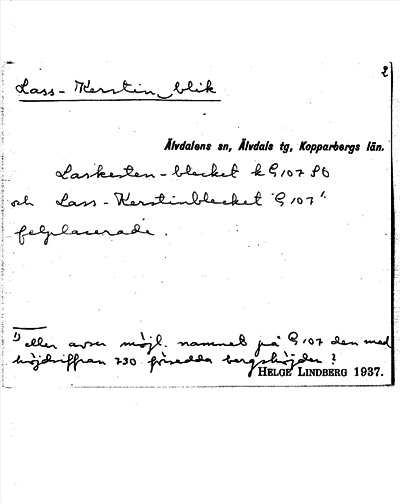 2
Lass-Kerstin_blik
Älvdalens sn, Älvdals tg, Kopparbergs län.
Laskesten-blecket k G 107 Sb
och Lass-Kerstinblecket G 107 1)
felplacerade.
1) eller avser möjl. namnet på G 107 den med
höjdsiffran 730 försedda bergshöjden?
HELGE LINDBERG 1937.